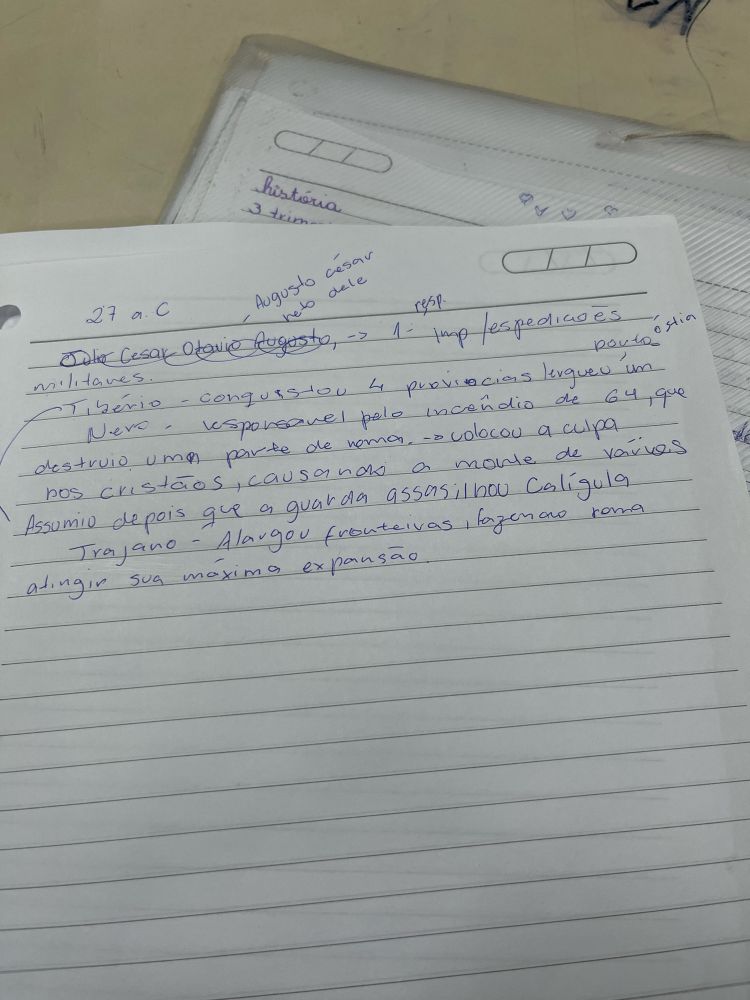 história
3 trim
27 a. C
Augusto césar
neto dele
Cesar Otavio Augusto, -> 1- Imp /espedicões
resp.
militares.
porto óstia
Tibério - conquistou 4 provincias/ergueu um
Nero - responsavel pelo incêndio de 64, que
destruio uma parte de roma. -> colocou a culpa
nos cristãos, causando a morte de vários
Assumio depois que a guarda assasilnou Calígula
Trajano - Alargou fronteiras, fazendo roma
atingir sua máxima expansão.